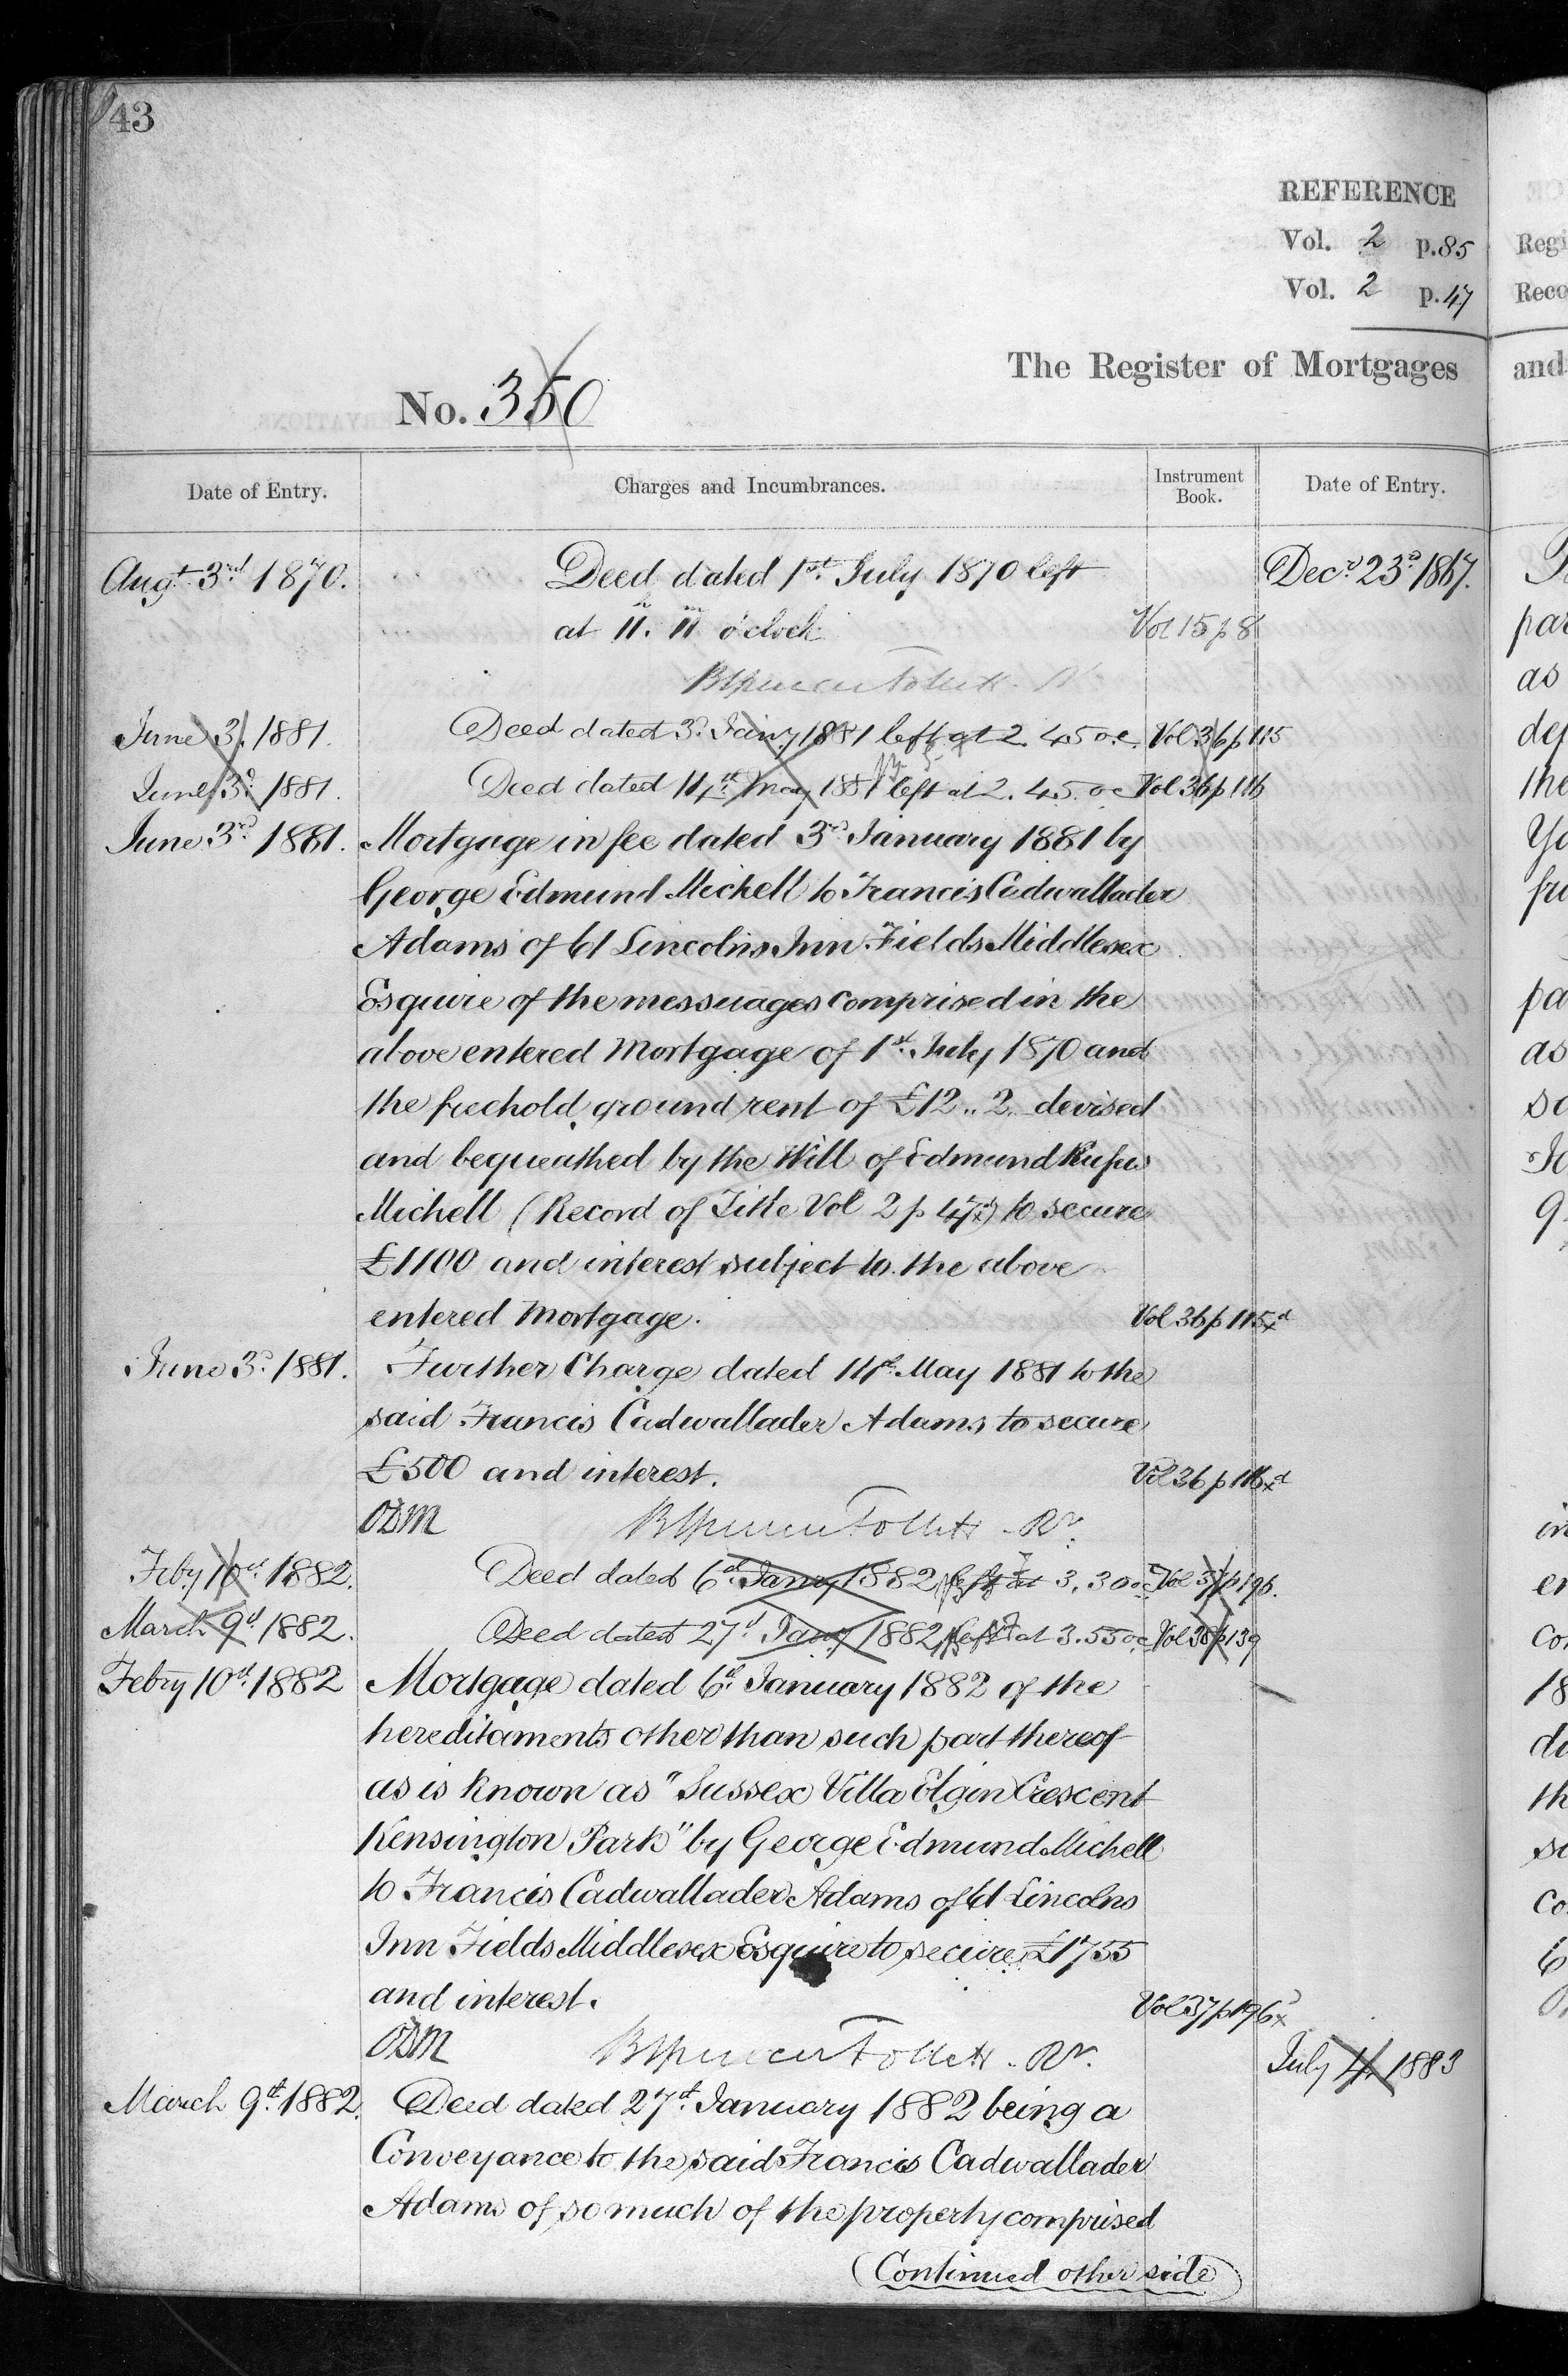 43
REFERENCE
Vol. 2 p. 85
Vol. 2 p. 47
The Register of Mortgages
No. 350
Date of Entry.
Charges and Incumbrances.
Instrument Book.
Date of Entry.
Augt. 3rd 1870. Deed dated 1st July 1870 left Decr. 23d 1867.
at 11h. 11m o'clock Vol 15 p 8
June 3. 1881. Deed dated 3d Jany 1881 left at 2.45 oc. Vol 36 p 115
June 3d 1881. Deed dated 14th May 1881 left at 2.45 oc Vol 36 p 116
June 3rd 1881. Mortgage in fee dated 3rd January 1881 by
George Edmund Michell to Francis Cadwallader
Adams of 61 Lincolns Inn Fields Middlesex
Esquire of the messuages comprised in the
above entered Mortgage of 1st July 1870 and
the freehold ground rent of £12..2.. devised
and bequeathed by the Will of Edmund Rufus
Michell (Record of Title Vol 2 p 47) to secure
£1100 and interest subject to the above
entered Mortgage. Vol 36 p 115
June 3d 1881. Further Charge dated 14th May 1881 to the
said Francis Cadwallader Adams to secure
£500 and interest. Vol 36 p 116
ODM Rr.
Feby 10th 1882. Deed dated 6th Jany 1882 left at 3.30 oc Vol 37 p 196.
March 9th 1882. Deed dated 27th Jany 1882 left at 3.55 oc Vol 38 p 139
Febry 10th 1882 Mortgage dated 6th January 1882 of the
hereditaments other than such part thereof
as is known as "Sussex Villa Elgin Crescent
Kensington Park" by George Edmund Michell
to Francis Cadwallader Adams of 61 Lincolns
Inn Fields Middlesex Esquire to secure £1755
and interest. Vol 37 p 196
ODM Rr.
July 4. 1883
March 9th 1882. Deed dated 27th January 1882 being a
Conveyance to the said Francis Cadwallader
Adams of so much of the property comprised
(Continued other side)
Regi
Reco
and
par
as
def
the
pa
as
so
9
in
en
con
18
du
th
so
co